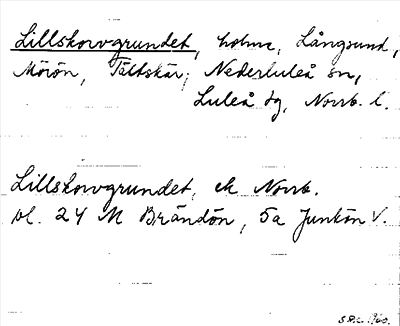 Lillskorvgrundet, holme, Långsund,
Mörön, Tältskär; Nederluleå sn,
Luleå tg, Norrb. l.
Lillskorvgrundet, ek Norrb.
bl. 24 M Brändön, 5a Junkön V.
1960.